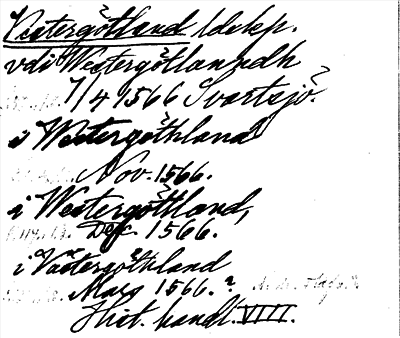 Västergötland ldskp.
vdi Westergötlanndh
7/4 1566 Svartsjö.
i Westergöthland
Nov. 1566.
i Westergöttland,
Dec. 1566.
i Västergöthland
Mars 1566.?
Hist. handl. VIII.